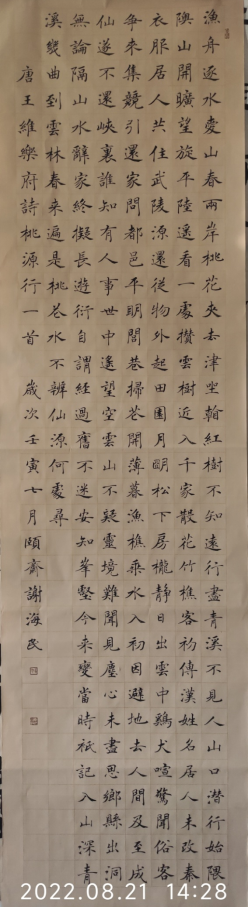 漁舟逐水愛山春兩岸桃花夾去津坐翰紅樹不知遠行盡青溪不見人山口潛行始隈
隩山開曠望旋平陸遙看一處攢雲樹近入千家散花竹樵客初傳漢姓名居人未改秦
衣服居人共住武陵源還從物外起田園月明松下房櫳靜日出雲中雞犬喧驚聞俗客
爭來集競引還家問都邑平明閭巷掃花開薄暮漁樵乘水入初因避地去人間及至成
仙遂不還峽裏誰知有人事世中遙望空雲山不疑靈境難聞見塵心未盡思鄉縣出洞
無論隔山水辭家終擬長遊衍自謂經過舊不迷安知峯壑今來變當時秖記入山深青
溪幾曲到雲林春來遍是桃花水不辨仙源何處尋
唐王維樂府詩桃源行一首 歲次壬寅七月頤齋謝海民
2022.08.21 14:28